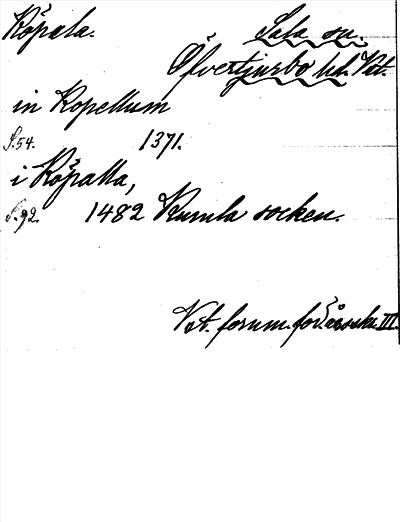 Köpala. Sala sn.
Öfvertjurbo hd. Vst.
in Kopellum
S. 54. 1371.
i Köpalla,
S. 92. 1482 Kumla socken.
Vst. fornm. för. årsskr. III.